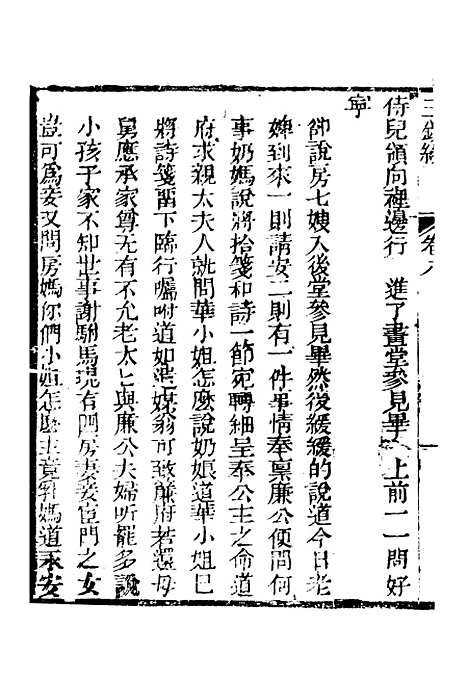 卷八
侍兒領向裡邊行　進了畫堂參見畢　上前一一問好
寧
卻說房七嫂入後堂參見畢然後緩緩的說道今日老
婢到來一則請安二則有一件事情奉稟廉公便問何
事奶媽說將拾箋和詩一節宛轉細呈奉公主之命道
府求親太夫人就問華小姐怎麼說奶娘道華小姐已
將詩箋留下臨行囑咐道如浼媒翁可致廉府若還母
舅應承家尊无有不允老太匕與廉公夫婦听罷多說
小孩子家不知世事謝駙馬現有四房妻妾宦門之女
豈可爲妾又問房媽你們小姐怎麽主意乳媽道承安